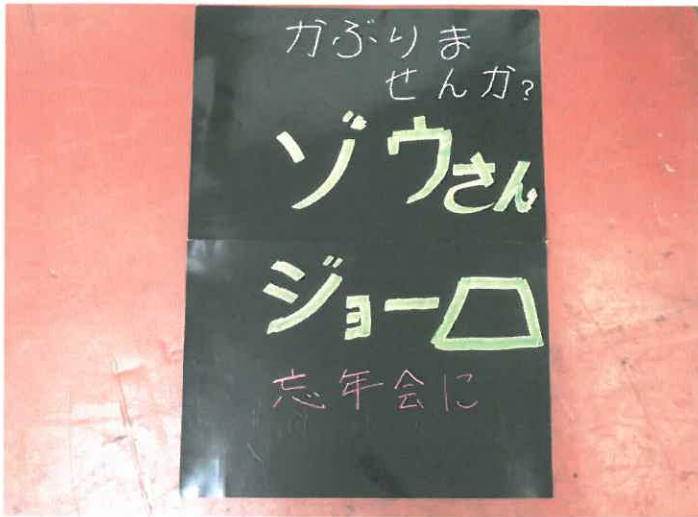 かぶりま
せんか?
ゾウさん
ジョーロ
忘年会に